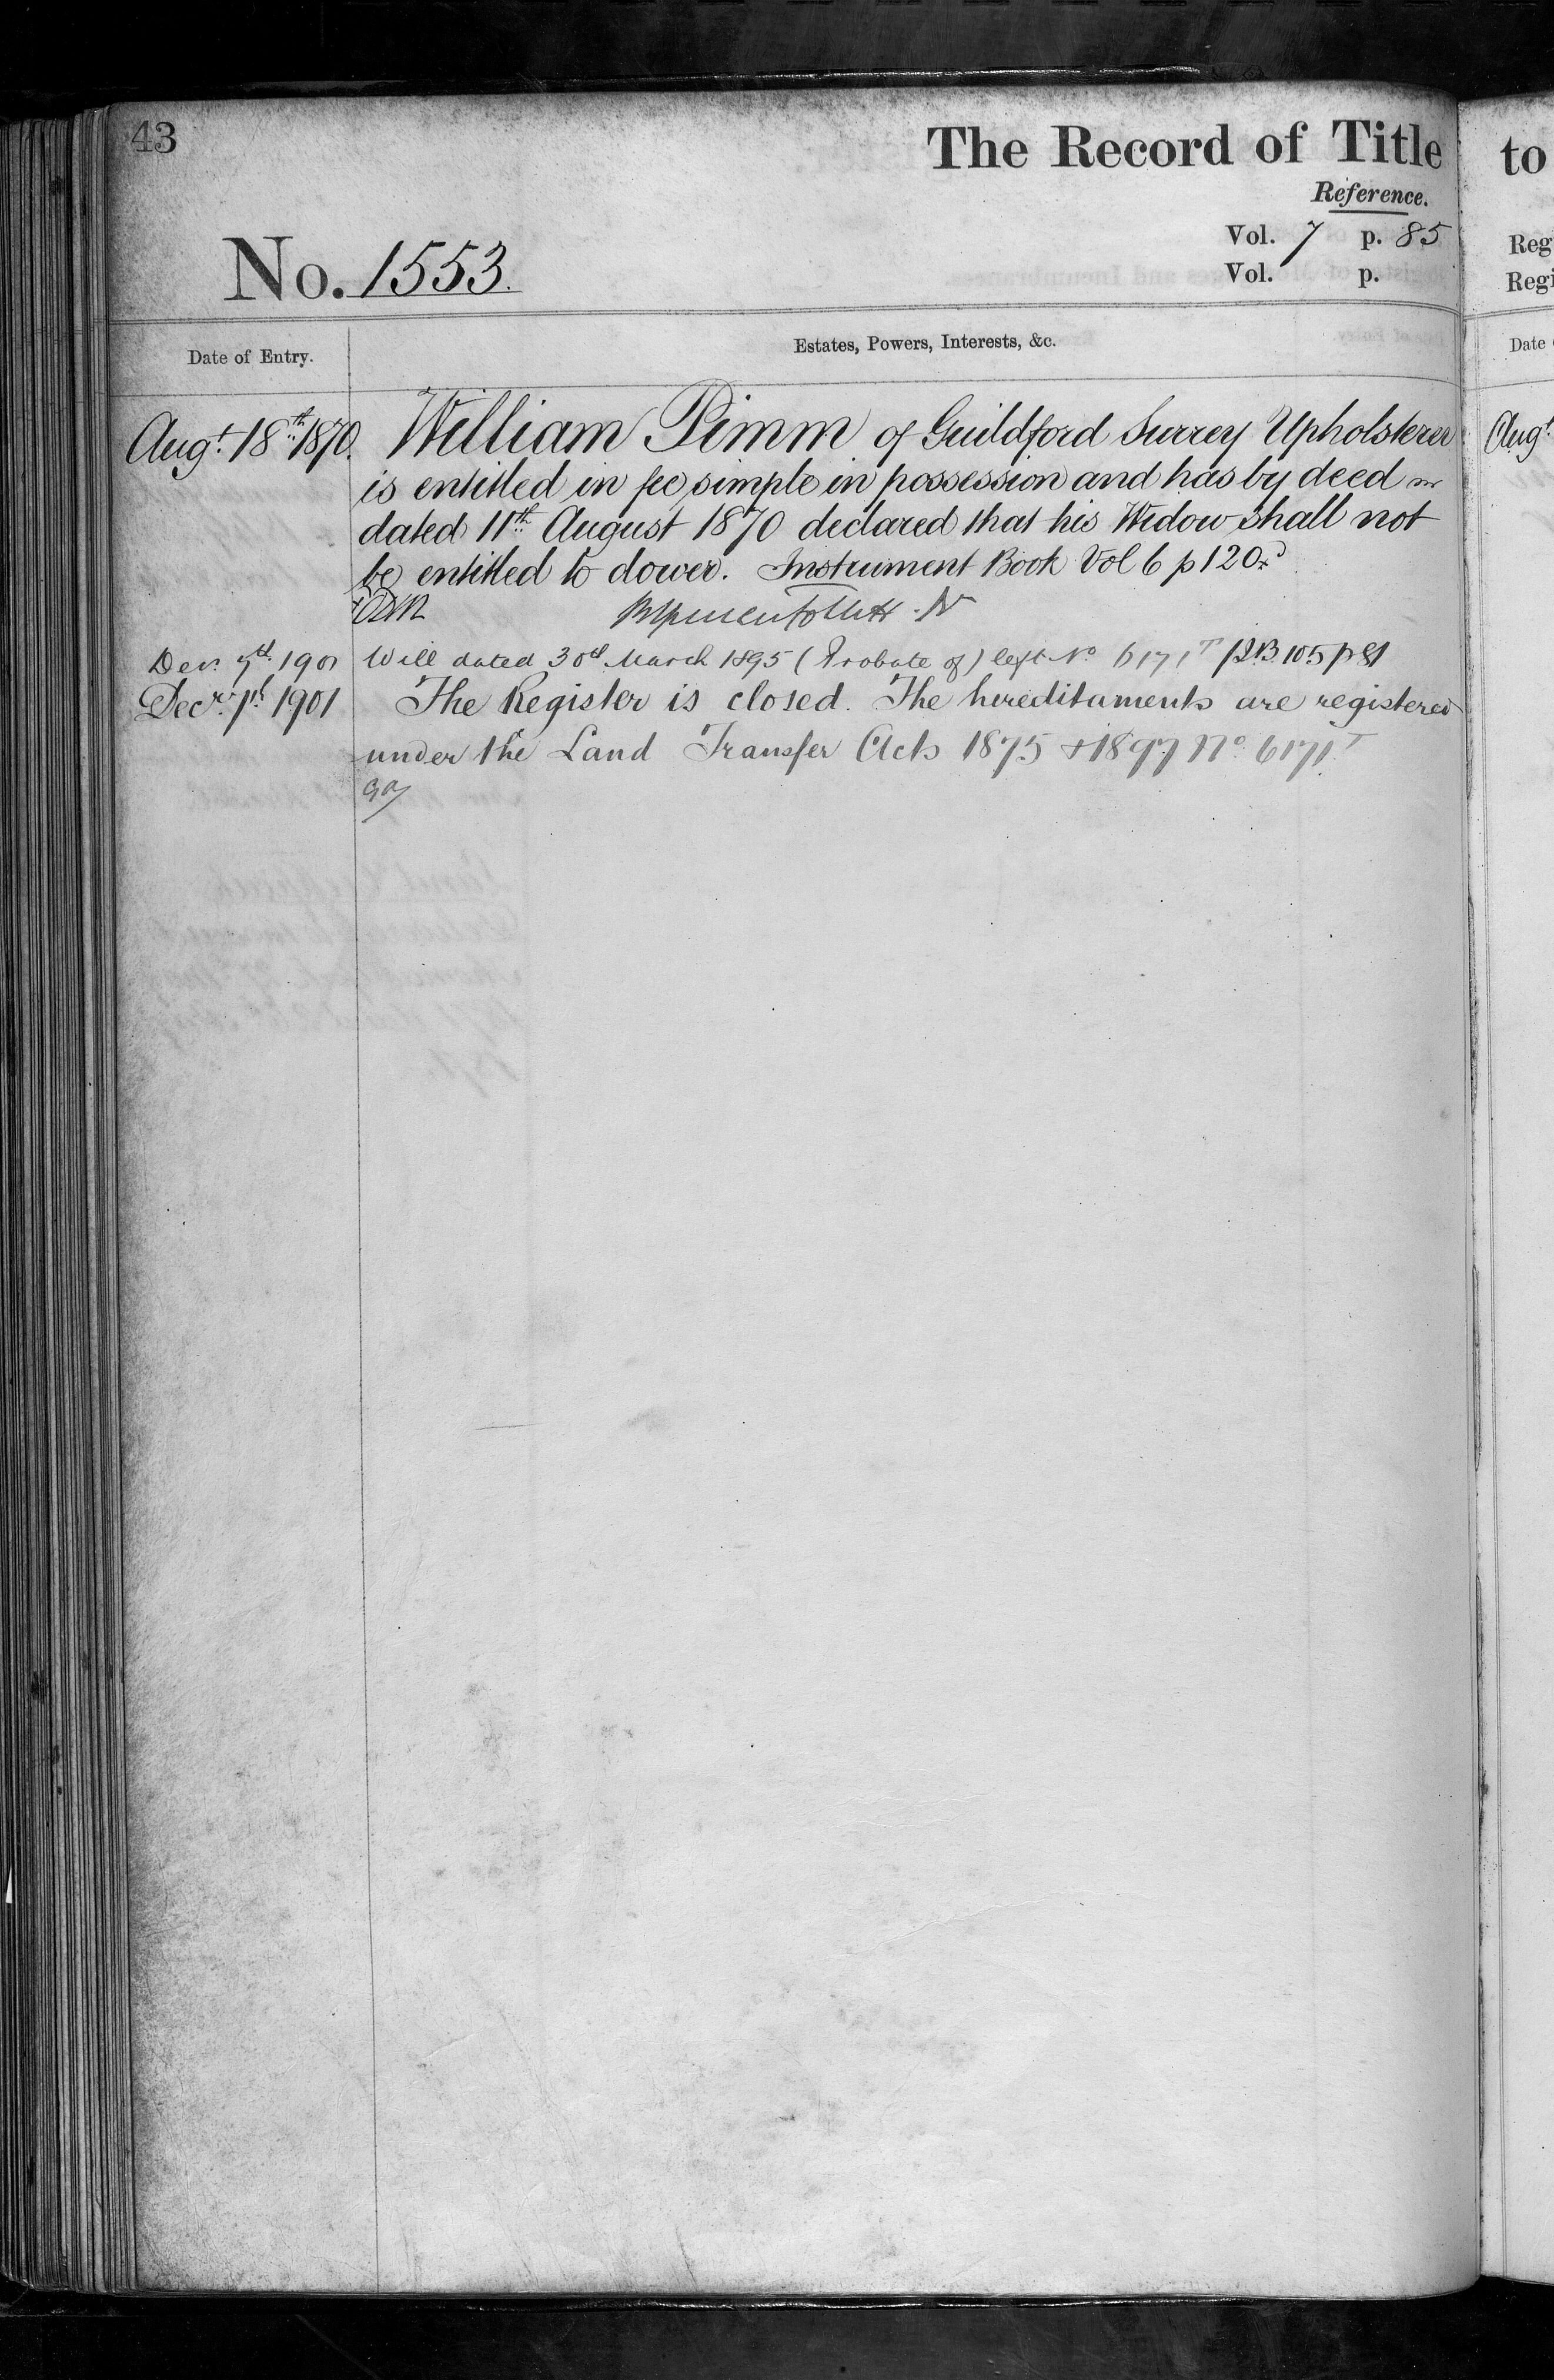 43
The Record of Title
to
Reference.
Vol. 7 p. 85
Reg
No. 1553.
Vol. p.
Regi
Date of Entry.
Estates, Powers, Interests, &c.
Date
Augt. 18th 1870. William Pimm of Guildford Surrey Upholsterer
Augt.
is entitled in fee simple in possession and has by deed
dated 11th August 1870 declared that his Widow shall not
be entitled to dower. Instrument Book Vol 6 p 120.
Dec. 7th 1901 Will dated 30th March 1895 (Probate of) left No 6171T 105 p 81
Decr. 7th 1901 The Register is closed. The hereditaments are registered
under the Land Transfer Acts 1875 + 1897 No. 6171T